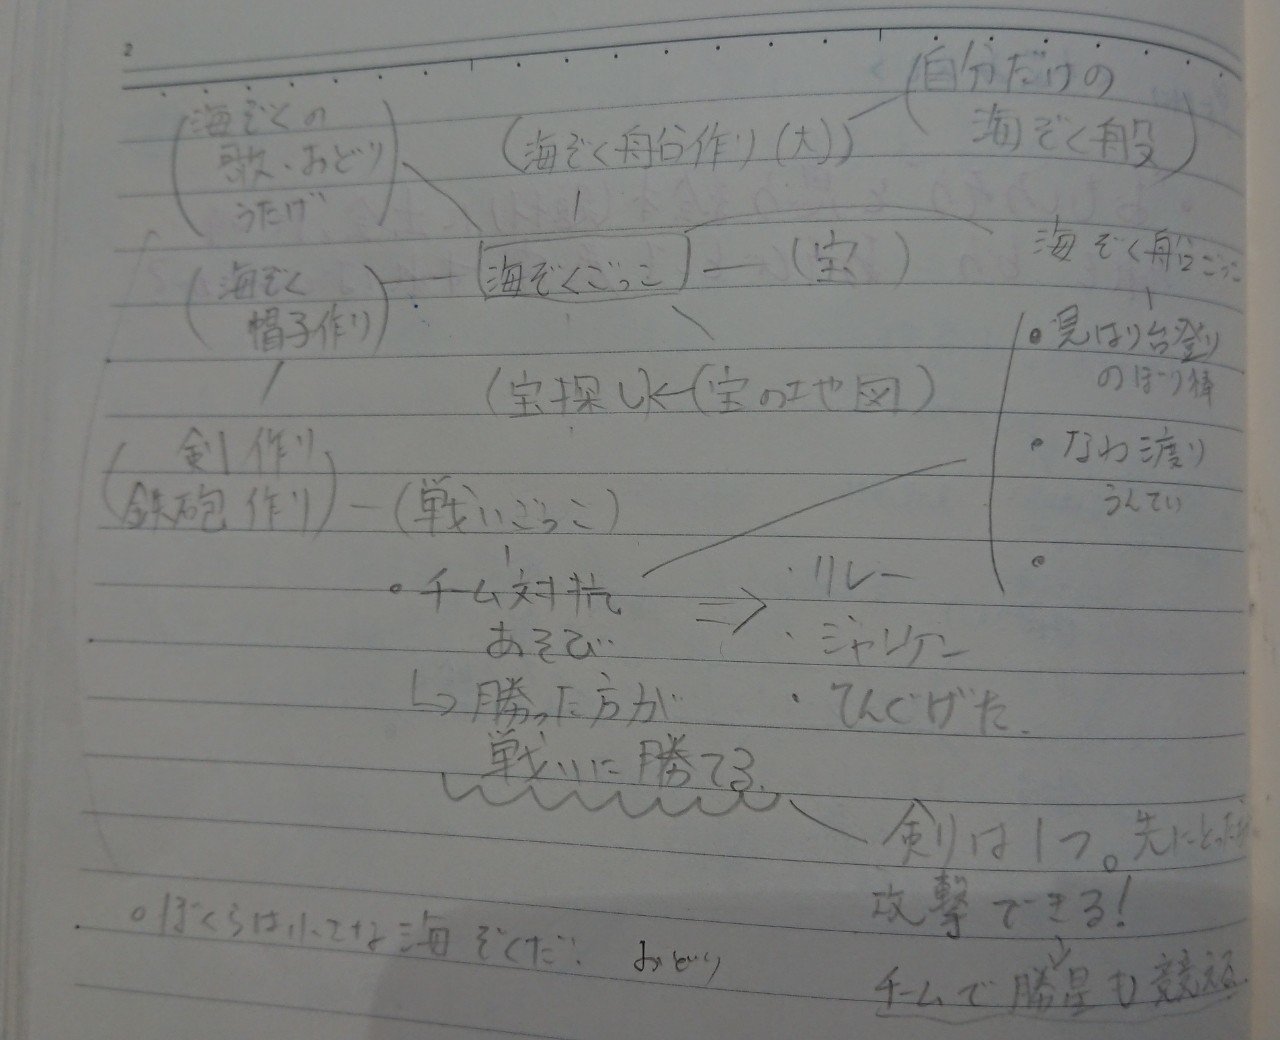 2
(海ぞくの
歌・おどり
うたげ)
(海ぞく船作り(大))
(自分だけの
海ぞく船)
(海ぞく
帽子作り)
海ぞくごっこ
(宝)
海ぞく船ごっこ
(宝探し)←(宝の地図)
・見はり台登り
のぼり棒
・なわ渡り
うんてい
・
(剣作り
鉄砲作り)
(戦いごっこ)
・チーム対抗
あそび
↳勝った方が
戦いに勝てる
⇒
・リレー
・ジャンケン
・てんぐげた
剣は1つ。先にとった
攻撃できる!
↓
チームで勝星も競える
○ぼくらは小さな海ぞくだ! おどり